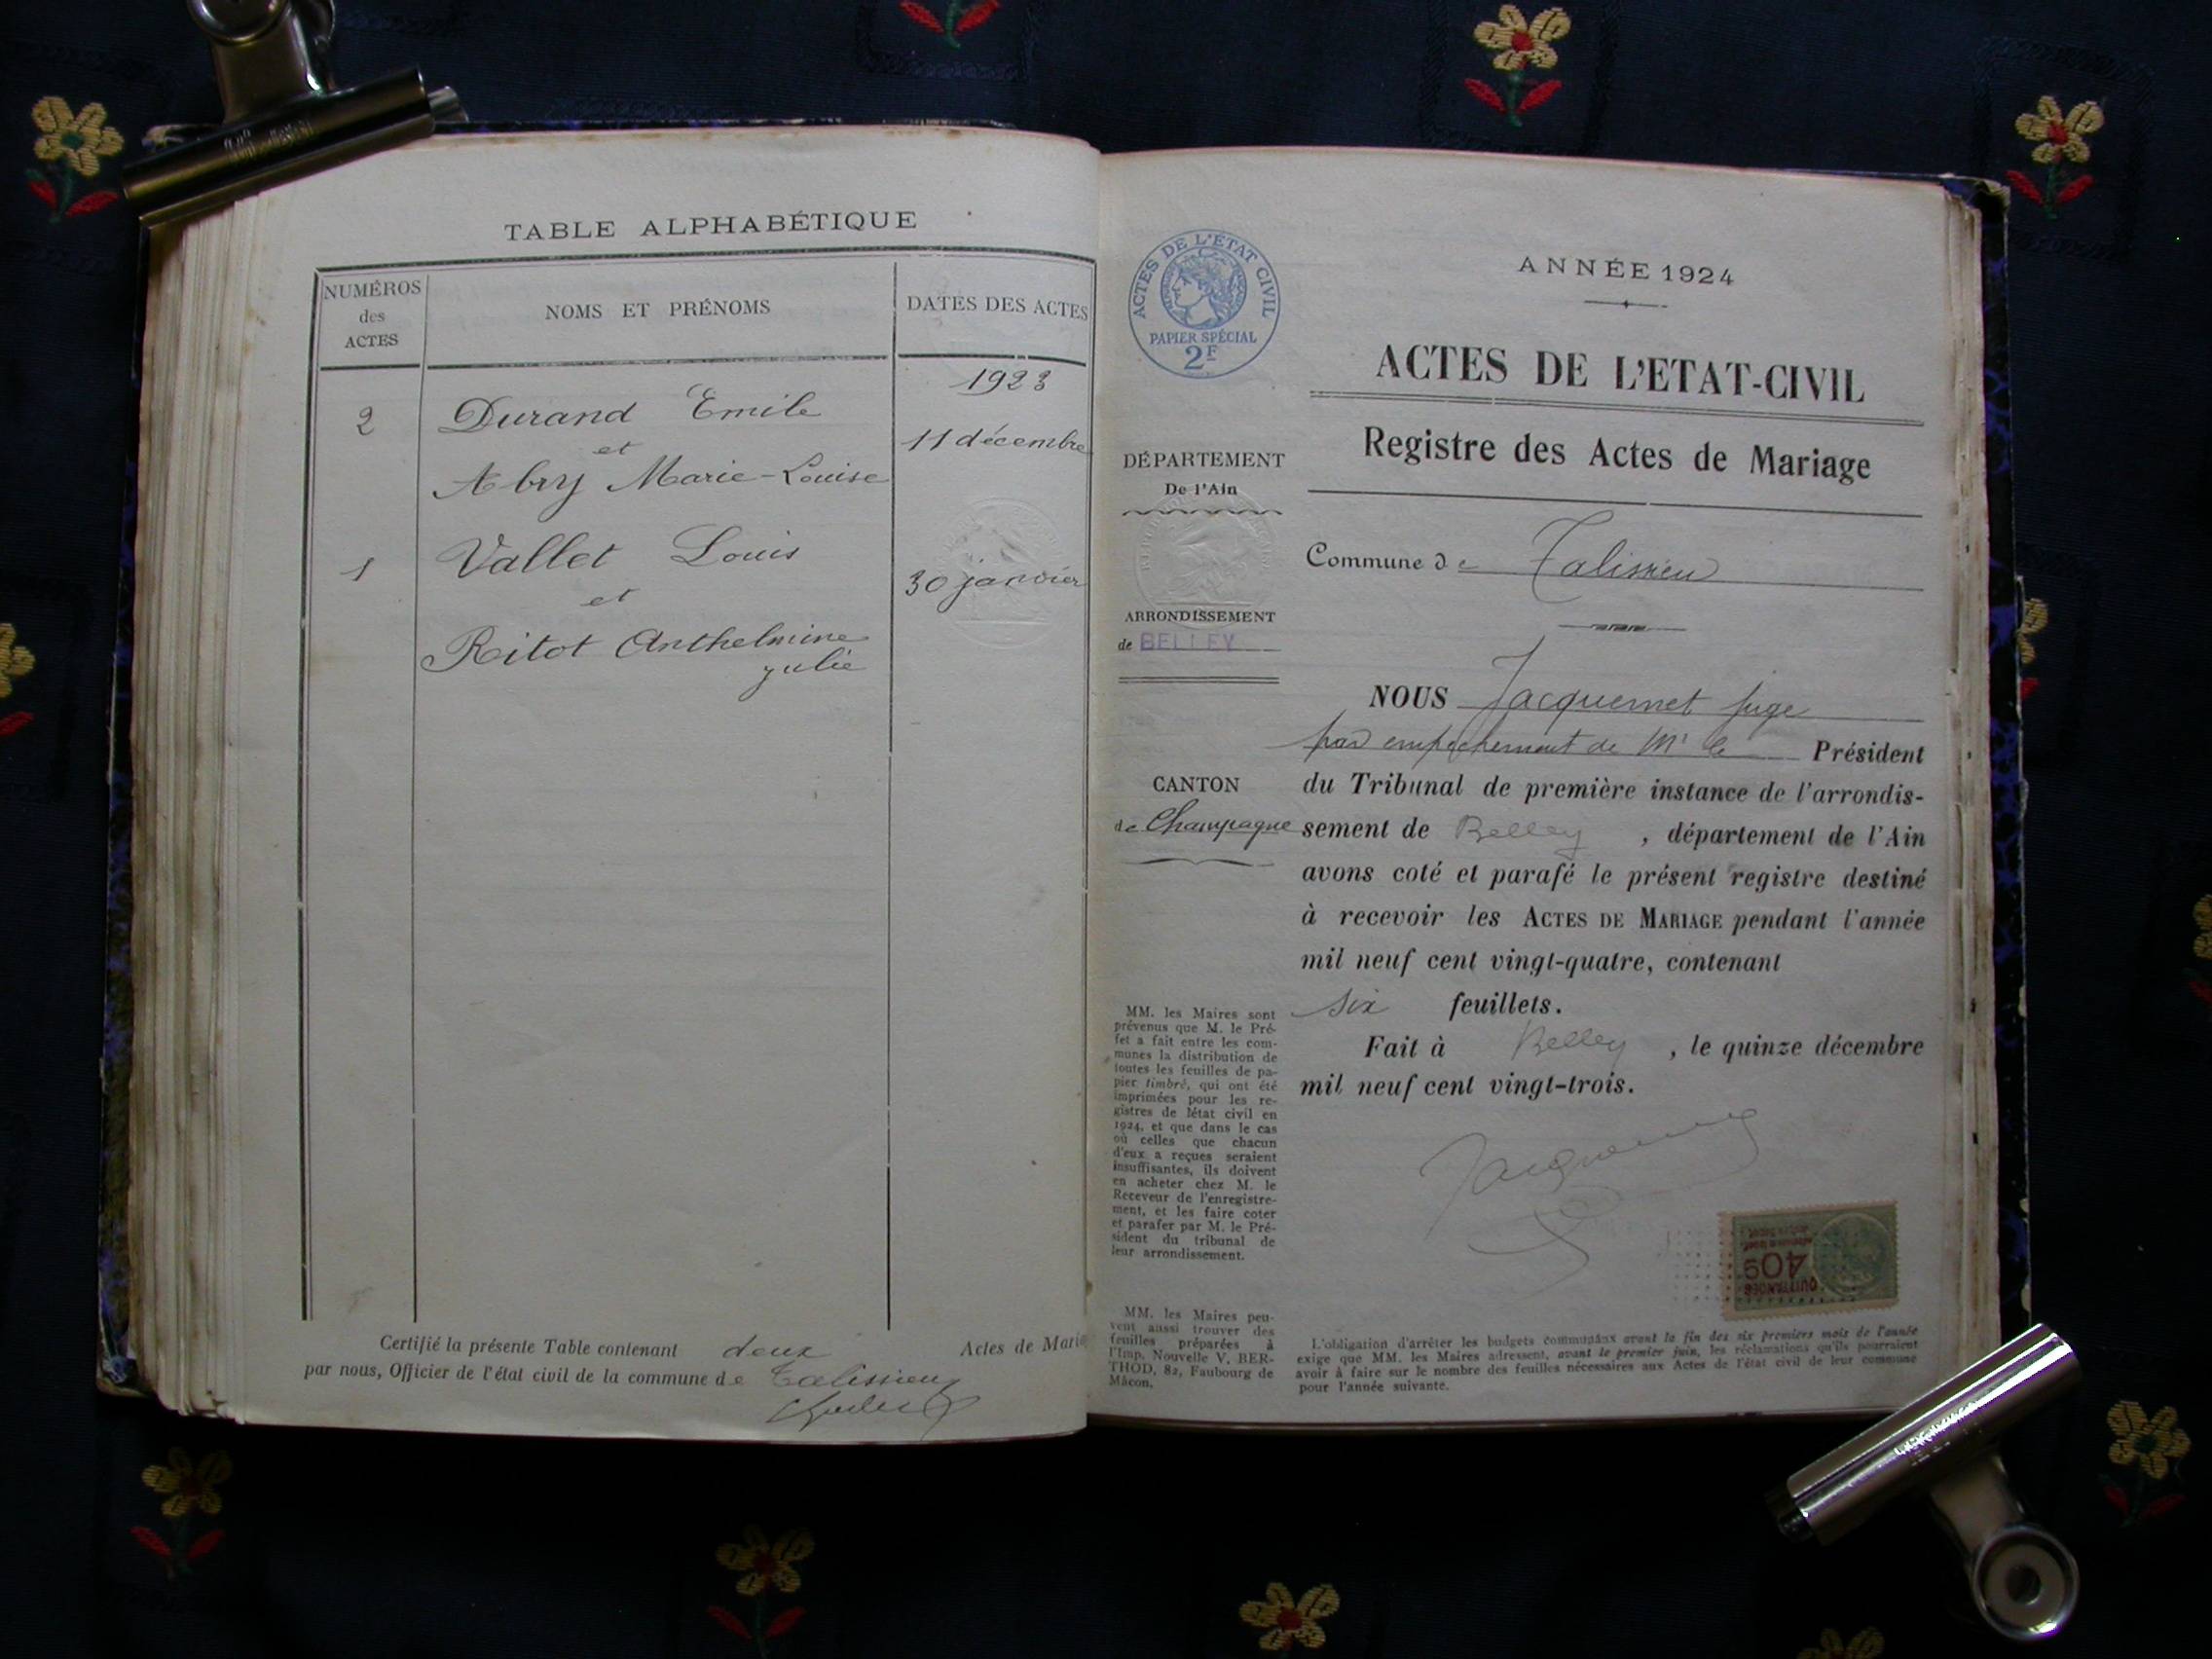 TABLE ALPHABÉTIQUE
NUMÉROS
des
ACTES
NOMS ET PRÉNOMS
DATES DES ACTES
1923
2
Durand Emile
et
Abry Marie-Louise
11 décembre
1
Vallet Louis
et
Ritot Anthelmine
Julie
30 janvier
Certifié la présente Table contenant deux Actes de Maria
par nous, Officier de l'état civil de la commune de Talissieu
ACTES DE L'ÉTAT CIVIL
PAPIER SPÉCIAL
2F
DÉPARTEMENT
De l'Ain
ARRONDISSEMENT
de BELLEY
CANTON
de Champagne
MM. les Maires sont
prévenus que M. le Pré-
fet a fait entre les com-
munes la distribution de
toutes les feuilles de pa-
pier timbré, qui ont été
imprimées pour les re-
gistres de létat civil en
1924, et que dans le cas
où celles que chacun
d'eux a reçues seraient
insuffisantes, ils doivent
en acheter chez M. le
Receveur de l'enregistre-
ment, et les faire coter
et parafer par M. le Pré-
sident du tribunal de
leur arrondissement.
MM. les Maires peu-
vent aussi trouver des
feuilles préparées à
l'Imp. Nouvelle V. BER-
THOD, 82, Faubourg de
Mâcon.
ANNÉE 1924
ACTES DE L'ETAT-CIVIL
Registre des Actes de Mariage
Commune de Talissieu
NOUS Jacquemet juge
par empêchement de Mr le Président
du Tribunal de première instance de l'arrondis-
sement de Belley, département de l'Ain
avons coté et parafé le présent registre destiné
à recevoir les ACTES DE MARIAGE pendant l'année
mil neuf cent vingt-quatre, contenant
six feuillets.
Fait à Belley, le quinze décembre
mil neuf cent vingt-trois.
QUITTANCES
40c
L'obligation d'arrêter les budgets communaux avant la fin des six premiers mois de l'année
exige que MM. les Maires adressent, avant le premier juin, les réclamations qu'ils pourraient
avoir à faire sur le nombre des feuilles nécessaires aux Actes de l'état civil de leur commune
pour l'année suivante.